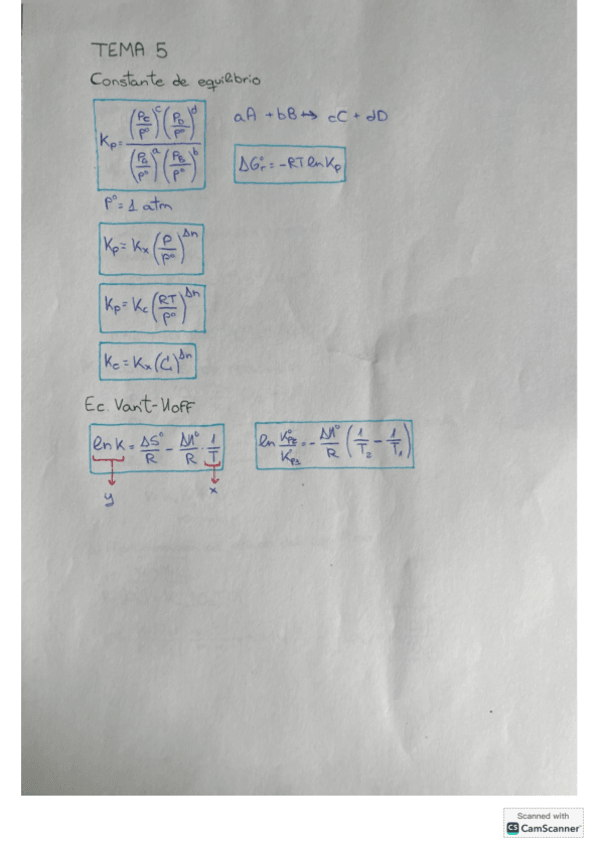 TEMA 5
Constante de equilibrio
Kp = (Pc/P°)^c (PD/P°)^d / (Pa/P°)^a (PB/P°)^b
aA + bB ↔ cC + dD
ΔG°r = -RT ln Kp
P° = 1 atm
Kp = Kx (P/P°)^Δn
Kp = Kc (RT/P°)^Δn
Kc = Kx (C)^Δn
Ec. Vant-Hoff
ln K = ΔS°/R - ΔH°/R · 1/T
y x
ln K°P2/KP1 = - ΔH°/R (1/T2 - 1/T1)
Scanned with
CS CamScanner